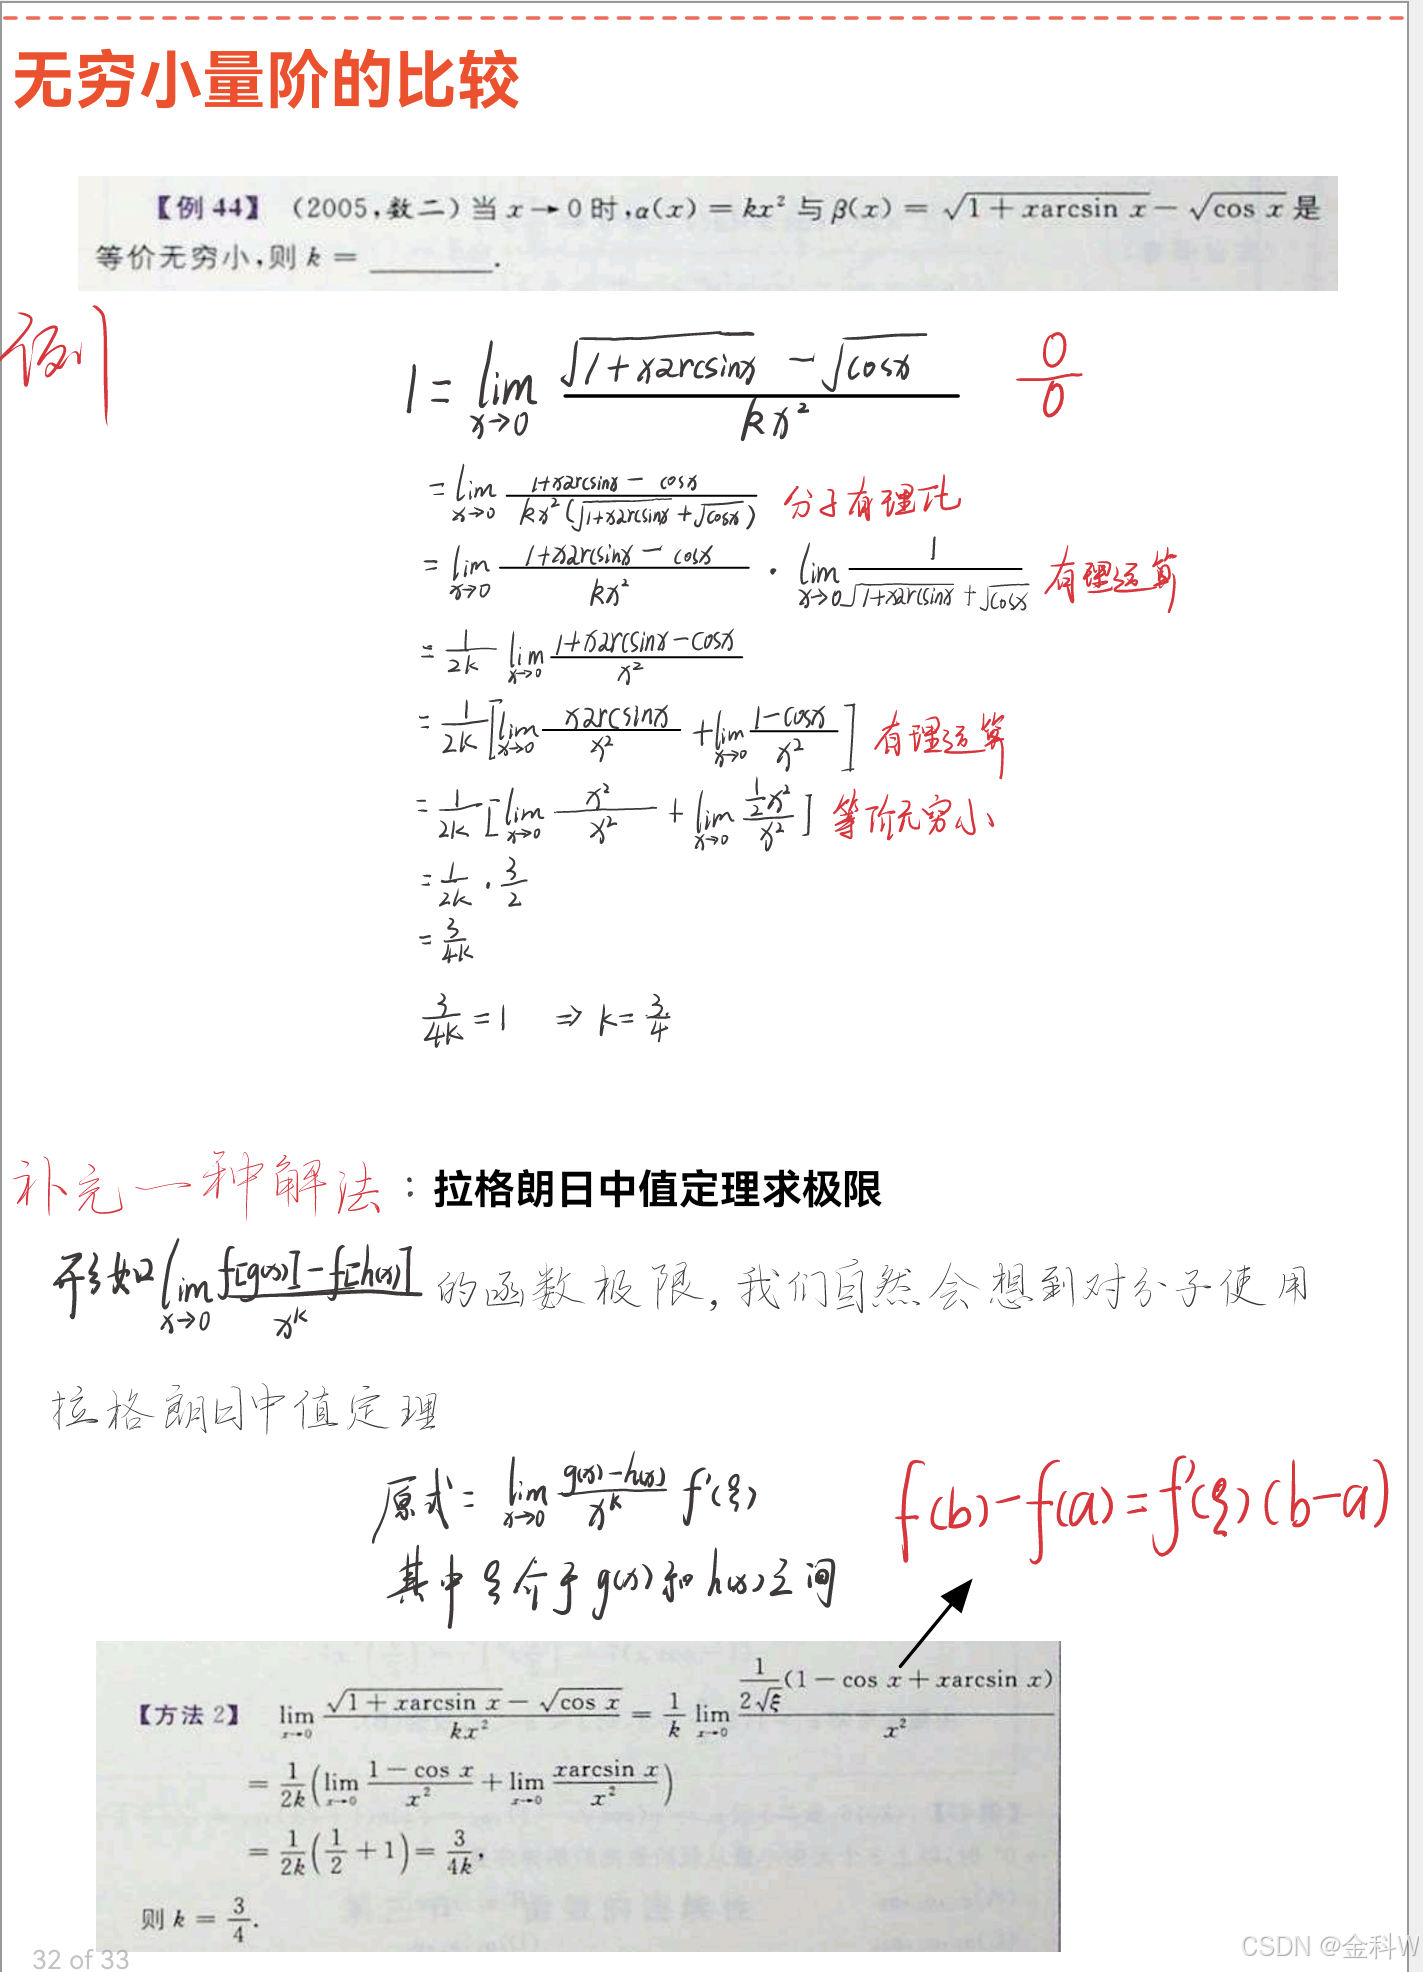 无穷小量阶的比较
【例 44】 (2005,数二)当 x→0 时,α(x) = kx² 与 β(x) = √(1 + xarcsin x) − √(cos x) 是
等价无穷小,则 k = ________.
例
1 = lim x→0 (√(1+xarcsinx) − √(cosx)) / kx² 0/0
= lim x→0 (1+xarcsinx − cosx) / (kx²(√(1+xarcsinx) + √(cosx))) 分子有理化
= lim x→0 (1+xarcsinx − cosx) / kx² · lim x→0 1 / (√(1+xarcsinx) + √(cosx)) 有理运算
= 1/2k lim x→0 (1+xarcsinx−cosx) / x²
= 1/2k [lim x→0 xarcsinx / x² + lim x→0 (1−cosx) / x²] 有理运算
= 1/2k [lim x→0 x²/x² + lim x→0 ½x²/x²] 等阶无穷小
= 1/2k · 3/2
= 3/4k
3/4k = 1 ⇒ k = 3/4
补充一种解法:拉格朗日中值定理求极限
形如 lim x→0 (f[g(x)] − f[h(x)]) / x^k 的函数极限, 我们自然会想到对分子使用
拉格朗日中值定理
原式 = lim x→0 (g(x)−h(x)) / x^k f'(ξ) f(b)−f(a)=f'(ξ)(b−a)
其中 ξ 介于 g(x) 和 h(x) 之间
【方法 2】 lim x→0 (√(1 + xarcsin x) − √(cos x)) / kx² = 1/k lim x→0 (1/(2√ξ) (1 − cos x + xarcsin x)) / x²
= 1/2k (lim x→0 (1 − cos x) / x² + lim x→0 xarcsin x / x²)
= 1/2k (1/2 + 1) = 3/4k,
则 k = 3/4.
32 of 33
CSDN @金科W